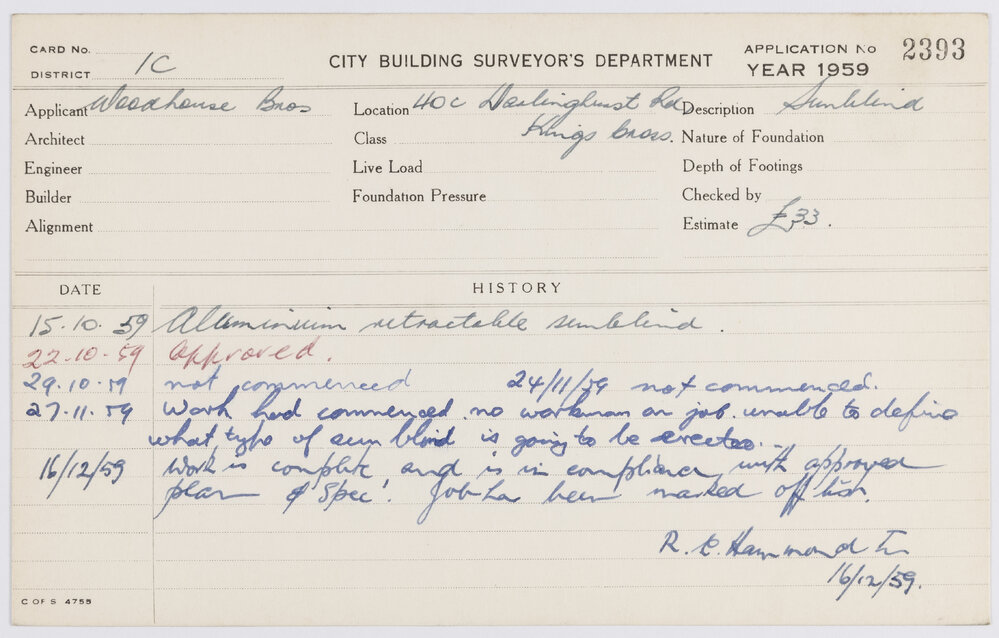 CARD No.
DISTRICT 1C
CITY BUILDING SURVEYOR'S DEPARTMENT
APPLICATION No 2393
YEAR 1959
Applicant Woodhouse Bros
Location 40c Darlinghurst Rd
Kings Cross.
Description Sunblind
Architect
Class
Nature of Foundation
Engineer
Live Load
Depth of Footings
Builder
Foundation Pressure
Checked by
Alignment
Estimate £33.
DATE HISTORY
15.10.59 Aluminium retractable sunblind.
22.10.59 Approved.
29.10.59 not commenced 24/11/59 not commenced.
27.11.59 Work had commenced. no workman on job. unable to define
what type of sun blind is going to be erected.
16/12/59 Work is complete and is in compliance with approved
plan & Spec'. Job has been marked off list.
R. E. Hammond
16/12/59.
C OF S 4755